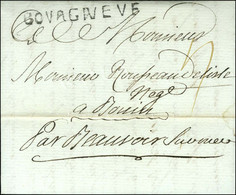 GOVAGNEVE
A Monsieur
Monsieur Rousseau
Negt
a Bouin
Par Beauvoir Sur mer